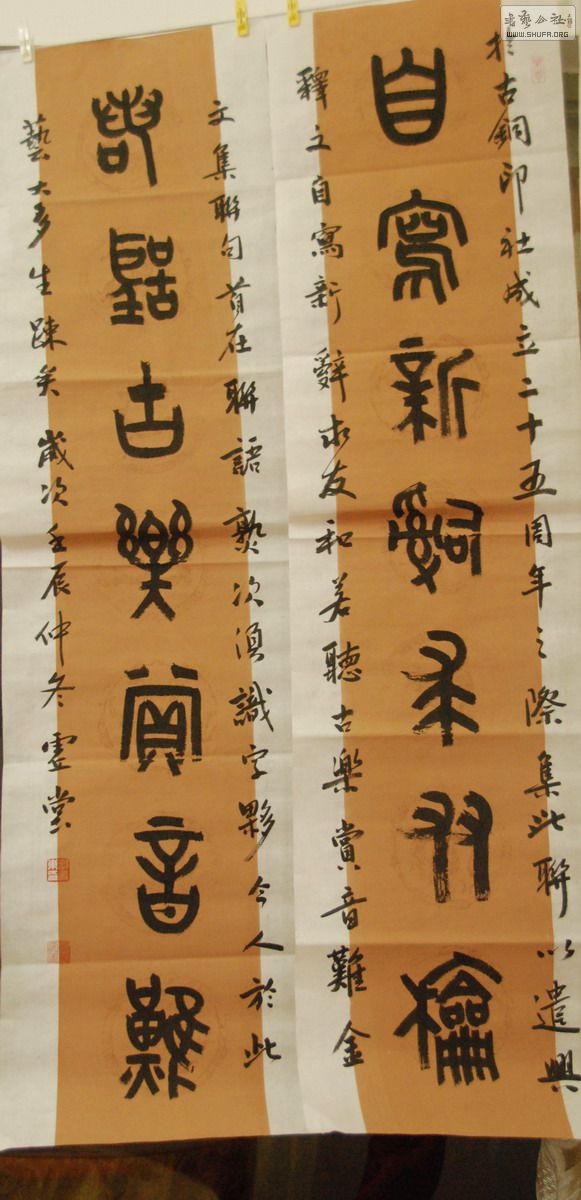 於古銅印社成立二十五周年之際集此聯以遣興
自寫新辭求友龢
釋文自寫新辭求友和若聽古樂賞音難金
文集聯句首在聯語熟次須識字夥今人於此
若聽古樂賞音難
藝大多生疎矣歲次壬辰仲冬
書藝公社
WWW.SHUFA.ORG